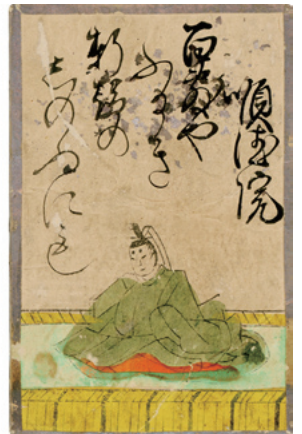 順徳院
百敷や
ふるき
軒端の
しのふにも